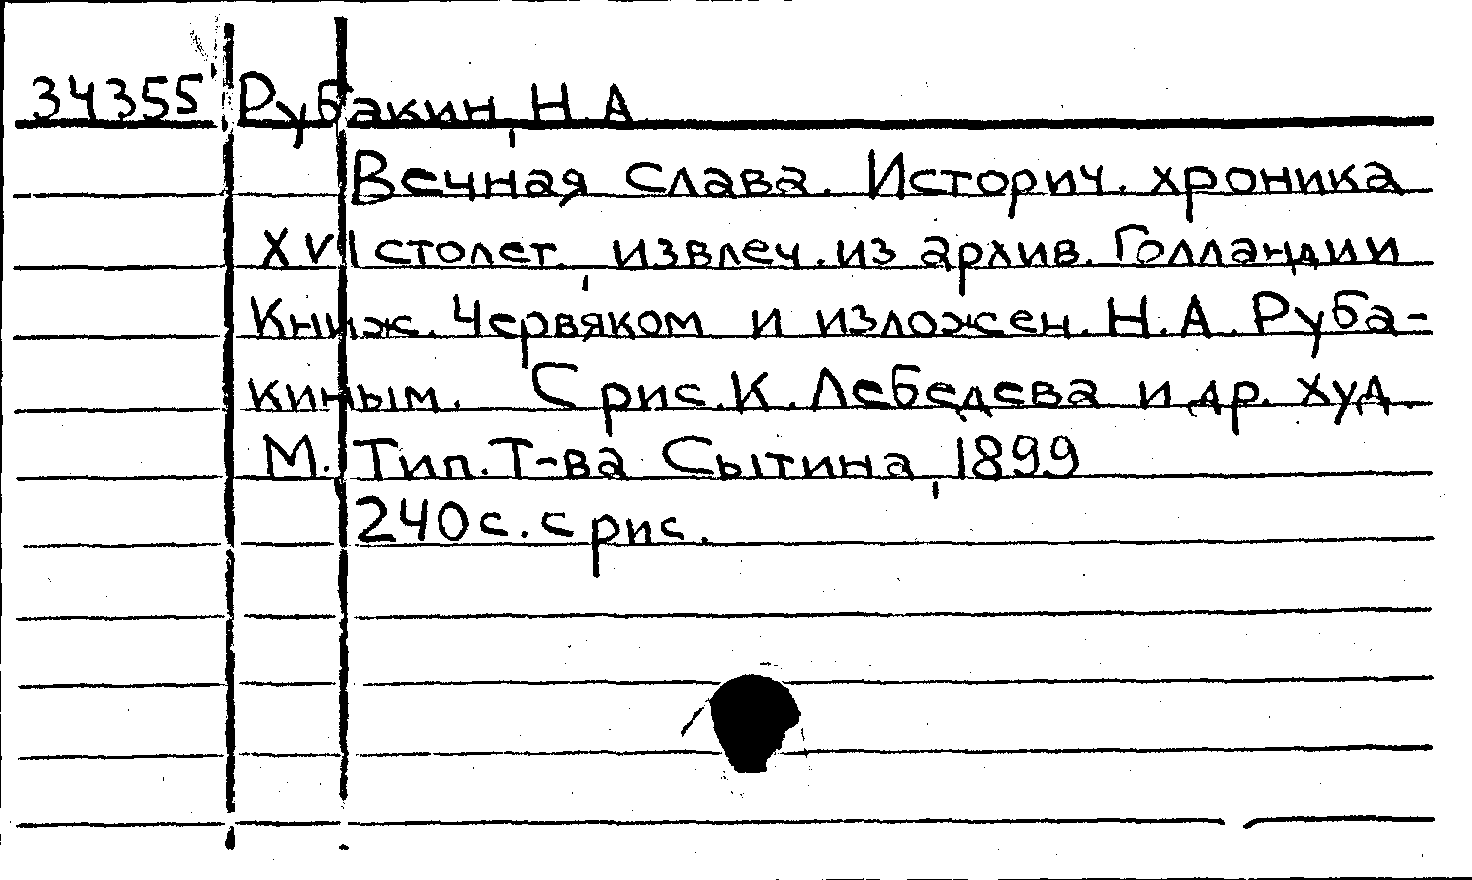 34355 Рубакин, Н. А
Вечная слава. Историч. хроника
XVI столет., извлеч. из архив. Голландии
Книж. Червяком и изложен. Н. А. Руба-
киным. С рис. К. Лебедева и др. худ
М. Тип. Т-ва Сытина, 1899
240 с. с рис.